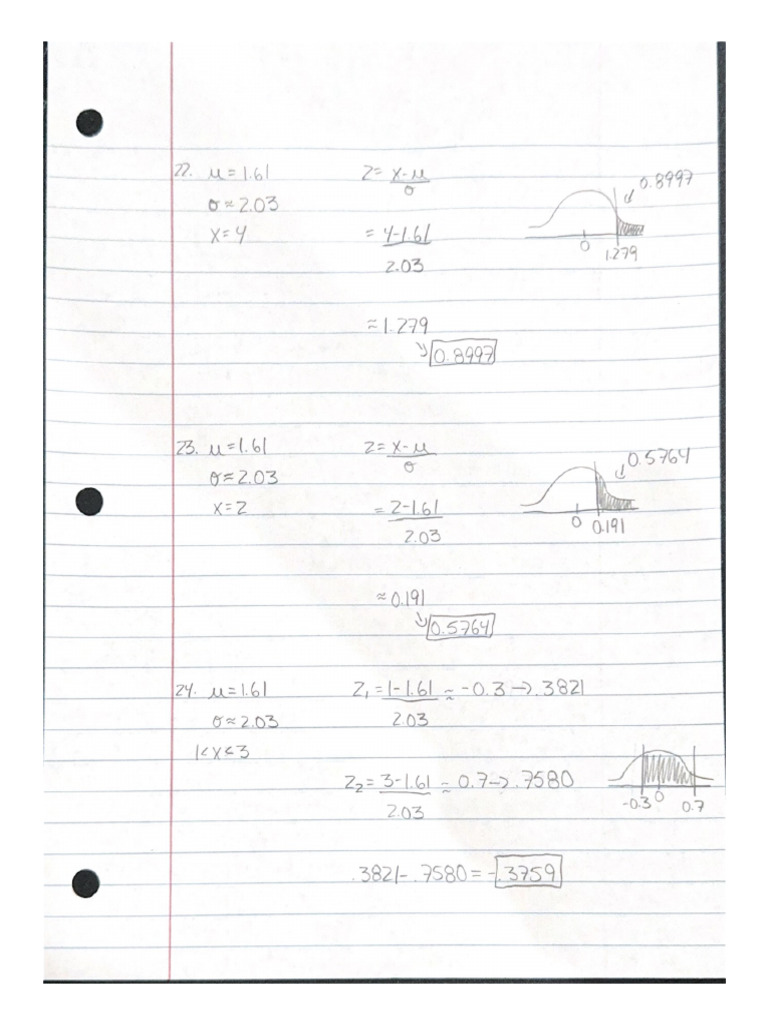 22. μ = 1.61
σ ≈ 2.03
x = 4
z = x-μ
σ
= 4-1.61
2.03
≈ 1.279
↘ 0.8997
↙ 0.8997
0
1.279
23. μ = 1.61
σ ≈ 2.03
x = 2
z = x-μ
σ
= 2-1.61
2.03
≈ 0.191
↘ 0.5764
↙ 0.5764
0
0.191
24. μ = 1.61
σ ≈ 2.03
1<x<3
z₁ = 1-1.61 ≈ -0.3 → .3821
2.03
z₂ = 3-1.61 ≈ 0.7 → .7580
2.03
-0.3 0 0.7
.3821 - .7580 = -.3759